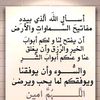 أسأل الله الذي بيده
مفاتيح السماوات والأرض
أن يفتح لنا ولكم أبواب
الخير والرزق وأن يغلق
عنا وعنكم أبواب الشر
والسوء وأن يوفقنا
ويوفقكم لما يحب ويرضى
اللهم آمين